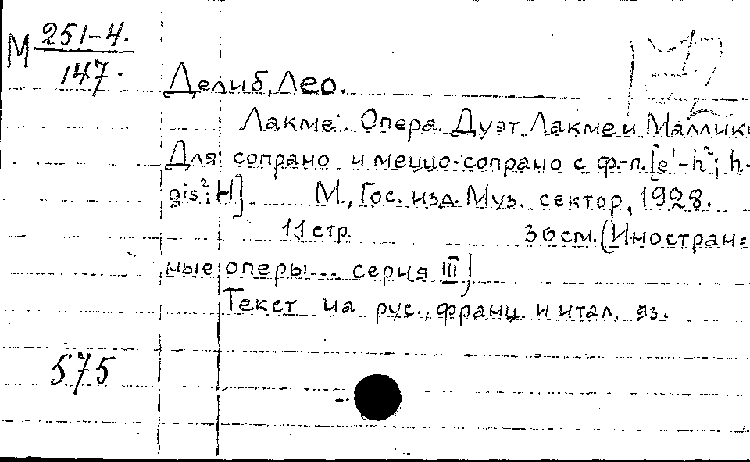 М 251-4.
147.
Делиб, Лео.
Лакме. Опера. Дуэт Лакме и Маллики
Для сопрано и меццо-сопрано с ф.-п. [e¹-h²; h-
gis²; H]. М., Гос. изд. Муз. сектор, 1928.
11 стр. 36 см. (Иностран=
ные оперы... серия III)
Текст на рус., франц. и итал. яз.
575